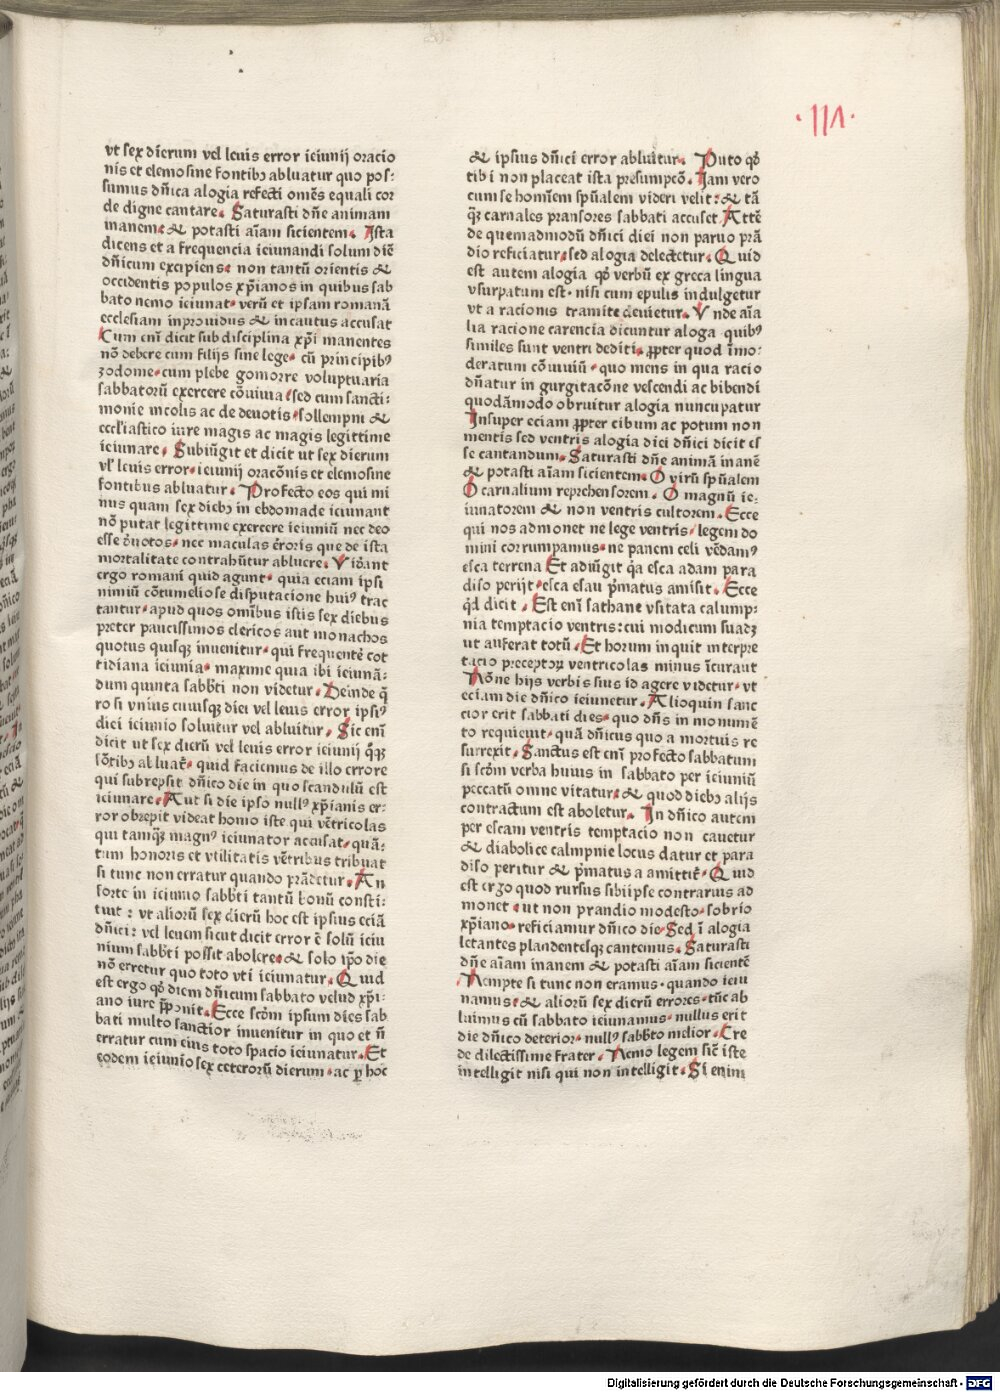 ·111·
vt sex dierum vel leuis error ieiunij oracio
nis et elemosine fontibꝫ abluatur quo pos⸗
sumus dñica alogia refecti omẽs equali cor
de digne cantare. Saturasti dñe animam
inanem: & potasti aĩam sicientem. Ista
dicens et a frequencia ieiunandi solum diẽ
dñicum excipiens: non tantũ orientis &
occidentis populos xp̃ianos in quibus sab
bato nemo ieiunat· verũ et ipsam romanã
ecclesiam inprouidus & incautus accusat
Cum enĩ dicit sub disciplina xp̃i manentes
nõ debere cum filijs sine lege· cũ principibꝰ
zodome· cum plebe gomorre voluptuaria
sabbatorũ exercere cõuiuia: sed cum sancti⸗
monie incolis ac de deuotis· sollempni &
eccl'iastico iure magis ac magis legittime
ieiunare. Subiũgit et dicit ut sex dierum
vl' leuis error· ieiunij oracõnis et elemosine
fontibus abluatur. Profecto eos qui mi
nus quam sex diebꝫ in ebdomade ieiunant
nõ putat legittime exercere ieiuniũ nec deo
esse d̃uotos· nec maculas ẽroris que de ista
mortalitate contrahũtur abluere. Vid̃ant
ergo romani quid agunt· quia eciam ipsi
nimiũ cõtumeliose disputacione huiꝰ trac
tantur· apud quos omĩbus istis sex diebus
preter paucissimos clericos aut monachos
quotus quisqꝫ inuenitur· qui frequentẽt cot
tidiana ieiunia· maxime quia ibi ieiunã⸗
dum quinta sabb̃ti non videtur. Deinde q̃
ro si vnius cuiusqꝫ diei vel leuis error ipsiꝰ
diei ieiunio soluitur vel abluitur. Sic enĩ
dicit ut sex dierũ vel leuis error ieiunij q̃qꝫ
fõtibꝫ abluat̃· quid faciemus de illo errore
qui subrepsit dñico die in quo scandulũ est
ieiunare. Aut si die ipso nullꝰ xp̃ianis er⸗
ror obrepit videat homo iste qui vẽtricolas
qui tamqꝫ magnꝰ ieiunator accusat· quã⸗
tum honoris et vtilitatis vẽtribus tribuat
si tunc non erratur quando prãdetur. An
forte in ieiunio sabb̃ti tantũ bonũ consti⸗
tuit: vt aliorũ sex dierũ hoc est ipsius eciã
dñici: vel leuem sicut dicit error ẽ solũ ieiu
nium sabb̃ti possit abolere: & solo ip̃o die
nõ erretur quo toto vti ieiunatur. Quid
est ergo qd̃ diem dñicum sabbato velud xp̃i⸗
ano iure p̃ponit. Ecce scd̃m ipsum dies sab
bati multo sanctior inuenitur in quo et ñ
erratur cum eius toto spacio ieiunatur. Et
eodem ieiunio sex ceterorũ dierum· ac ꝑ hoc
& ipsius dñici error abluitur. Puto qd̃
tibi non placeat ista presumpcõ. Iam vero
cum se homĩem sp̃ualem videri velit: & tã
q̃ꝫ carnales pransores sabbati accuset Attẽ
de quemadmodũ dñici diei non paruo prã
dio reficiatur· sed alogia delectetur. Quid
est autem alogia qd̃ verbũ ex greca lingua
vsurpatum est· nisi cum epulis indulgetur
vt a racionis tramite deuietur. Vnde aĩa
lia racione carencia dicuntur aloga quibꝰ
similes sunt ventri dediti. ꝓpter quod ĩmo⸗
deratum cõuiuiũ· quo mens in qua racio
dñatur in gurgitacõne vescendi ac bibendi
quodãmodo obruitur alogia nuncupatur
Insuper eciam ꝓpter cibum ac potum non
mentis sed ventris alogia diei dñici dicit es
se cantandum. Saturasti dñe animã inanẽ
& potasti aĩam sicientem. O virũ sp̃ualem
O carnalium reprehensorem. O magnũ ie⸗
iunatorem & non ventris cultorem. Ecce
qui nos admonet ne lege ventris· legem do
mini corrumpamus· ne panem celi vẽdamꝰ
esca terrena Et adiũgit q̃a esca adam para
diso perijt· esca esau p̃matus amisit. Ecce
q̃d dicit. Est enĩ sathane vsitata calump⸗
nia temptacio ventris: cui modicum suadꝫ
ut auferat totũ. Et horum inquit interpre
tacio preceptoꝝ ventricolas minus ĩcuraut
Nõne hijs verbis suis id agere videtur· vt
eciam die dñico ieiunetur. Alioquin sanc
cior erit sabbati dies· quo dñs in monumẽ
to requieuit· quã dñicus quo a mortuis re
surrexit. Sanctus est enĩ profecto sabbatum
si scd̃m verba huius in sabbato per ieiuniũ
peccatũ omne vitatur: & quod diebꝫ alijs
contractum est aboletur. In dñico autem
per escam ventris temptacio non cauetur
& diabolice calmpnie locus datur et para
diso peritur & p̃matus a amittit̃. Quid
est ergo quod rursus sibi ipse contrarius ad
monet· ut non prandio modesto· sobrio
xp̃iano· reficiamur dñico die· Sed ĩ alogia
letantes plandentesqꝫ cantemus. Saturasti
dñe aĩam inanem & potasti aĩam sicientẽ
Nempe si tunc non eramus· quando ieiu
namus: & aliorũ sex dierũ errores· tũc ab
luimus cũ sabbato ieiunamus· nullus erit
die dñico deterior· nullꝰ sabb̃to melior. Cre
de dilectissime frater. Nemo legem sicẽ iste
intelligit nisi qui non intelligit. Si enim
Digitalisierung gefördert durch die Deutsche Forschungsgemeinschaft - DFG